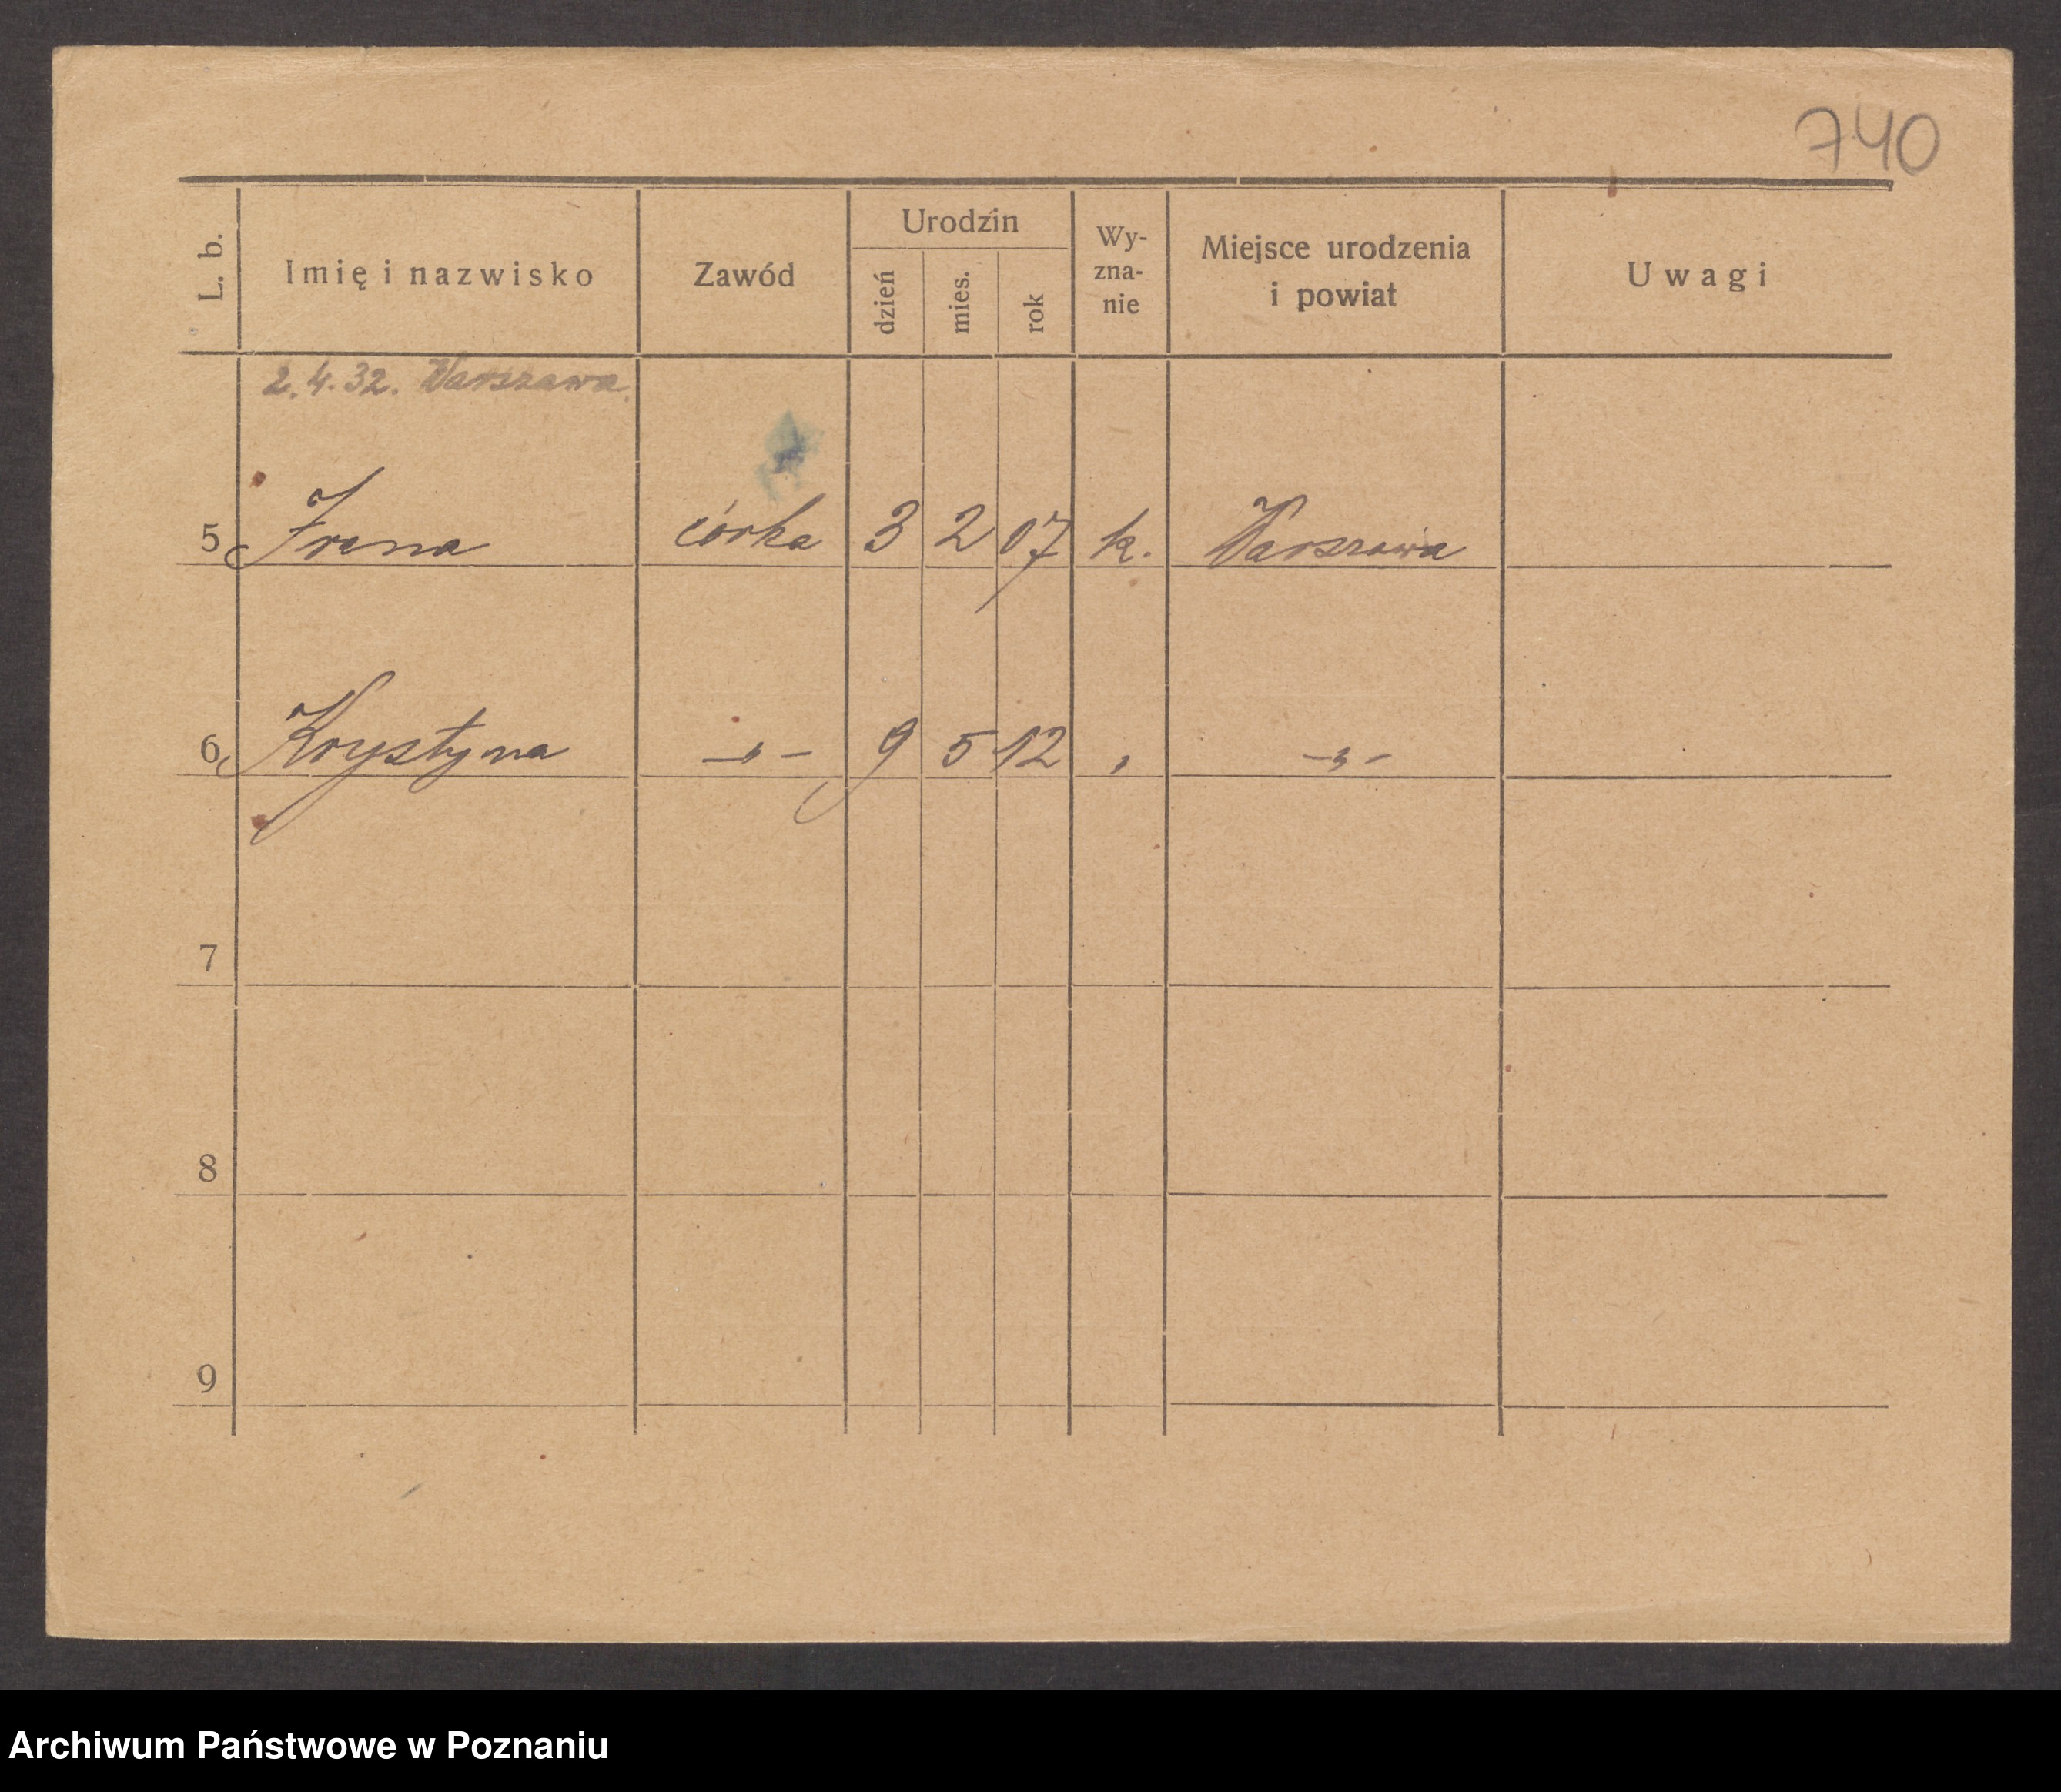 740
L. b. Imię i nazwisko Zawód Urodzin dzień mies. rok Wy-zna-nie Miejsce urodzenia i powiat Uwagi
2.4.32. Warszawa.
5 Irena córka 3 2 07 k. Warszawa
6 Krystyna -"- 9 5 12 " -"-
7
8
9
Archiwum Państwowe w Poznaniu